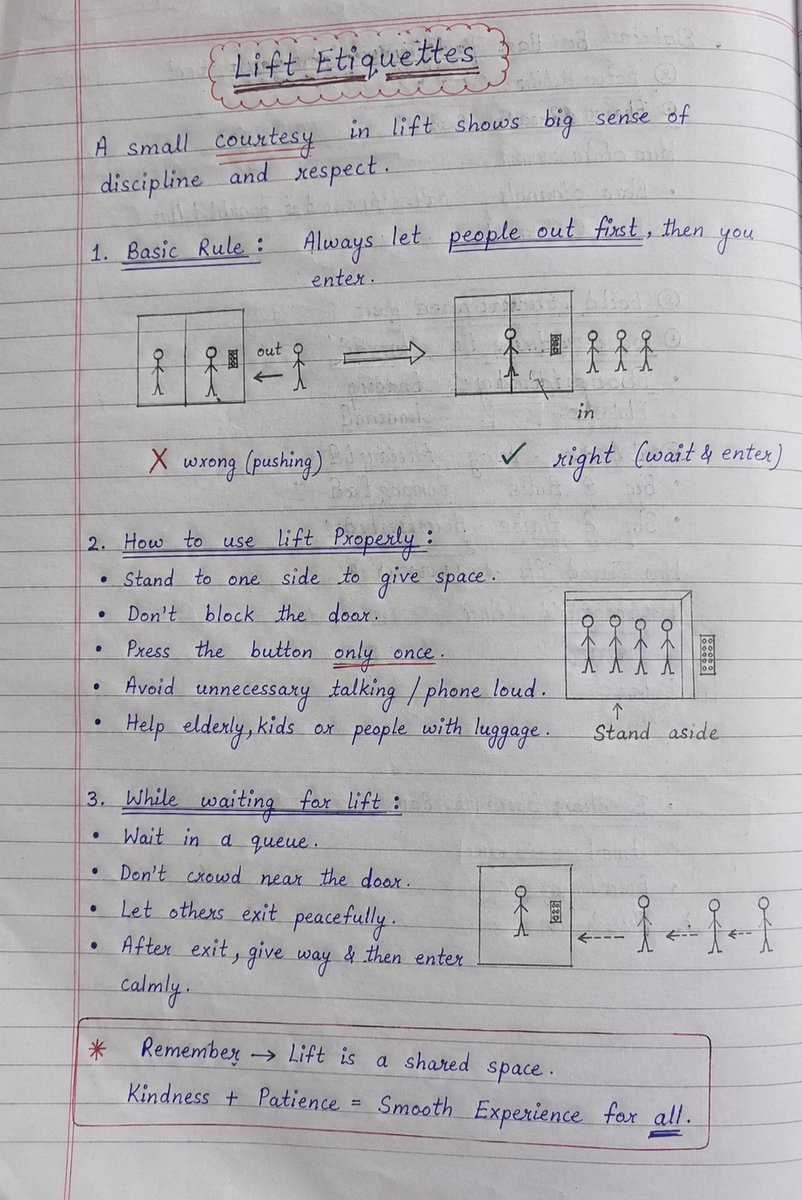 Lift Etiquettes
A small courtesy in lift shows big sense of
discipline and respect.
1. Basic Rule : Always let people out first, then you
enter.
out
in
X wrong (pushing)
✓ right (wait & enter)
2. How to use lift Properly :
• Stand to one side to give space.
• Don't block the door.
• Press the button only once.
• Avoid unnecessary talking / phone loud.
• Help elderly, kids or people with luggage.
↑
Stand aside
3. While waiting for lift :
• Wait in a queue.
• Don't crowd near the door.
• Let others exit peacefully.
• After exit, give way & then enter
calmly.
* Remember → Lift is a shared space.
Kindness + Patience = Smooth Experience for all.